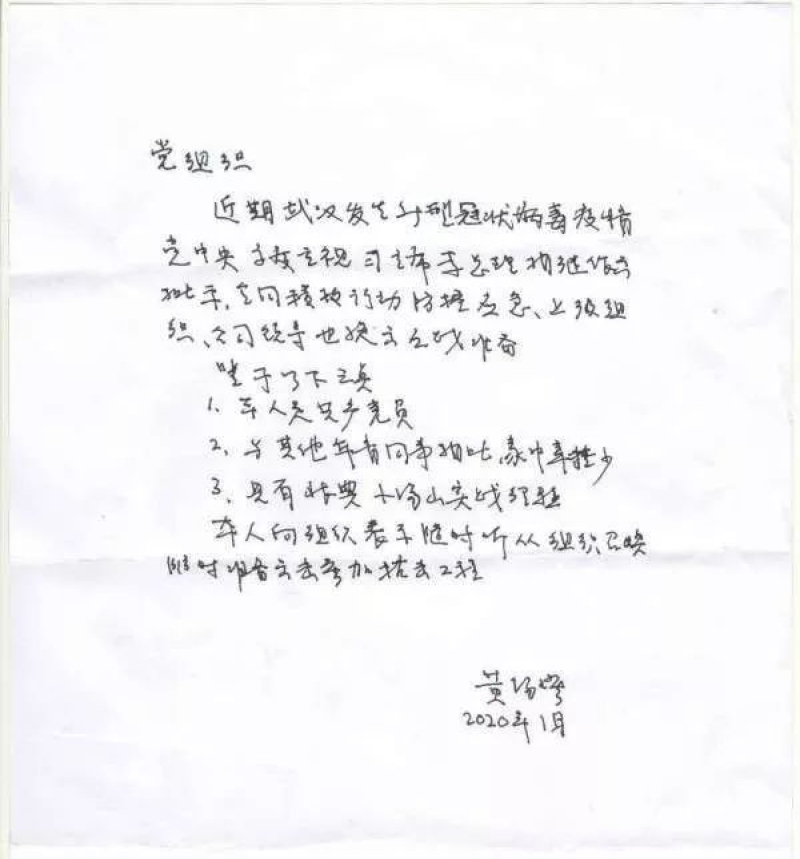 党组织
近期武汉发生新型冠状病毒疫情
党中央高度重视习主席李总理相继作出
批示,全国积极行动防控应急、上级组
织、公司领导也换文应战准备
鉴于以下三点
1、本人是共产党员
2、与其他年青同事相比,家中牵挂少
3、具有非典小汤山实战经验
本人向组织表示随时听从组织召唤
随时准备出击参加抗击工程
黄锡璆
2020年1月